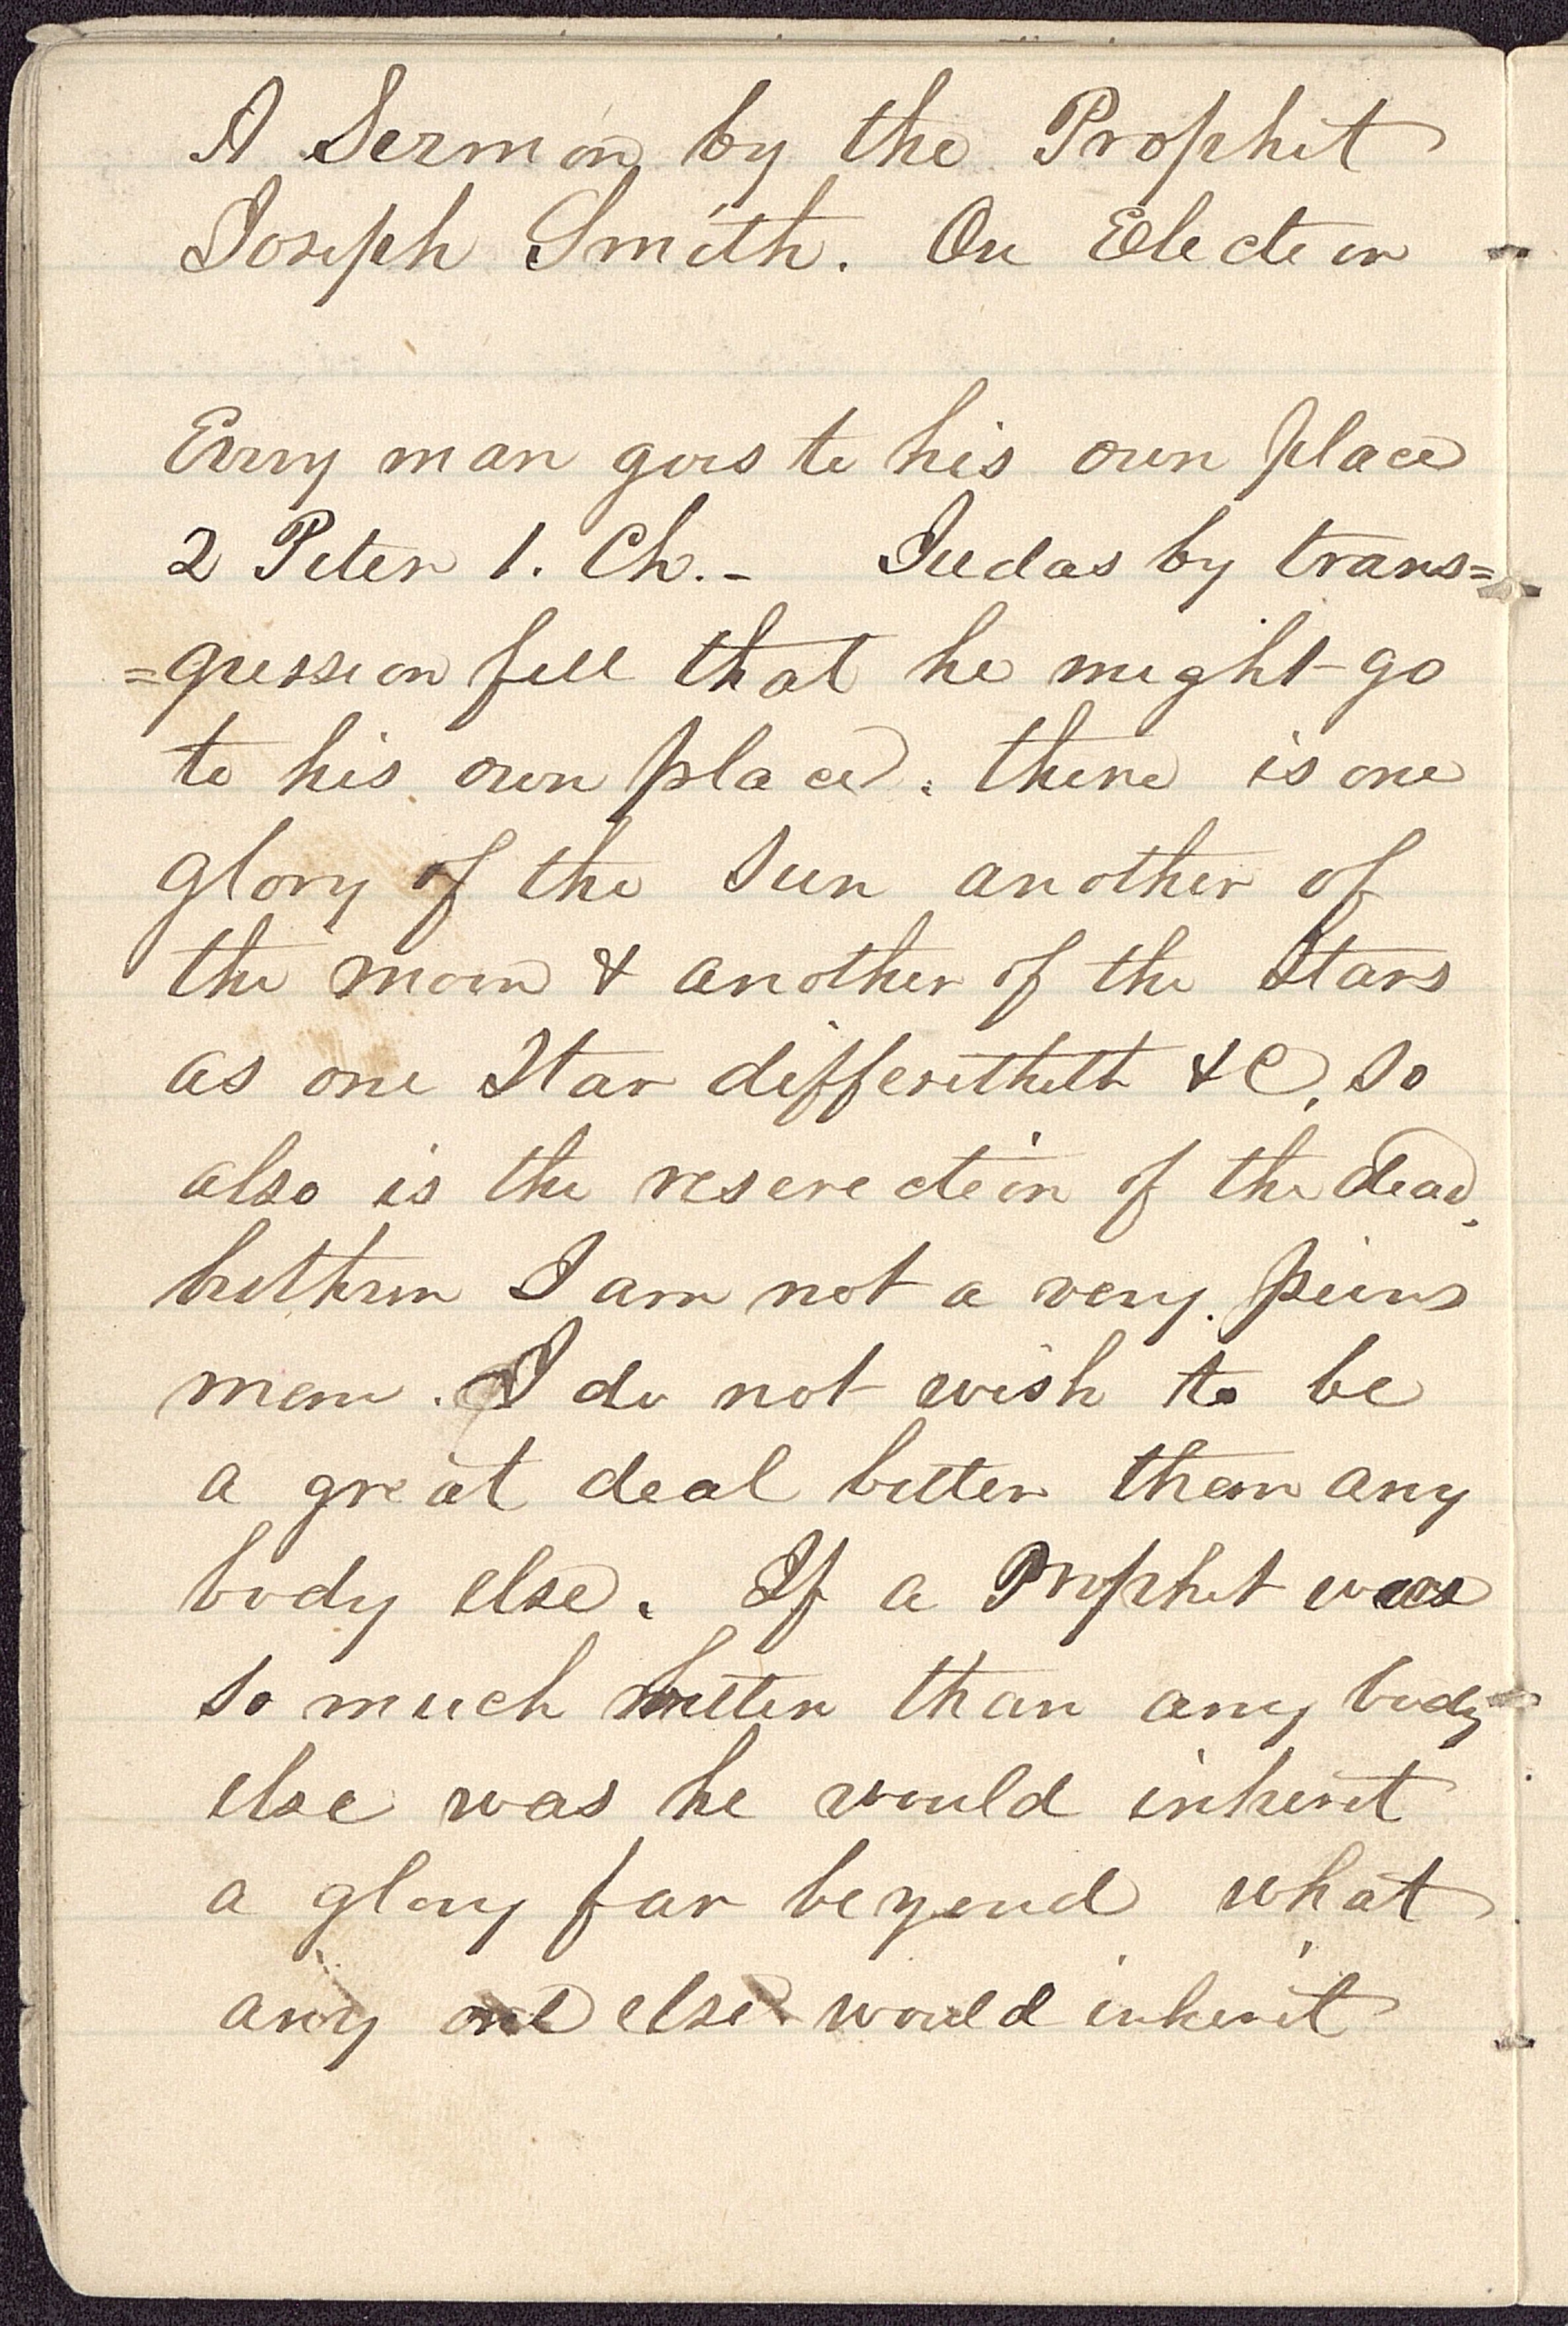 A Sermon by the Prophet
Joseph Smith. On Election
Every man goes to his own place
2 Peter 1. Ch.- Judas by trans=
=gression fell that he might go
to his own place. there is one
glory of the Sun another of
the moon & another of the Stars
as one Star differetheth &C. So
also is the reserection of the dead.
brethren I am not a very pious
man. I do not wish to be
a great deal better than any
body else. If a Prophet was
so much better than any body
else was he would inherit
a glory far beyond what
any one else would inherit